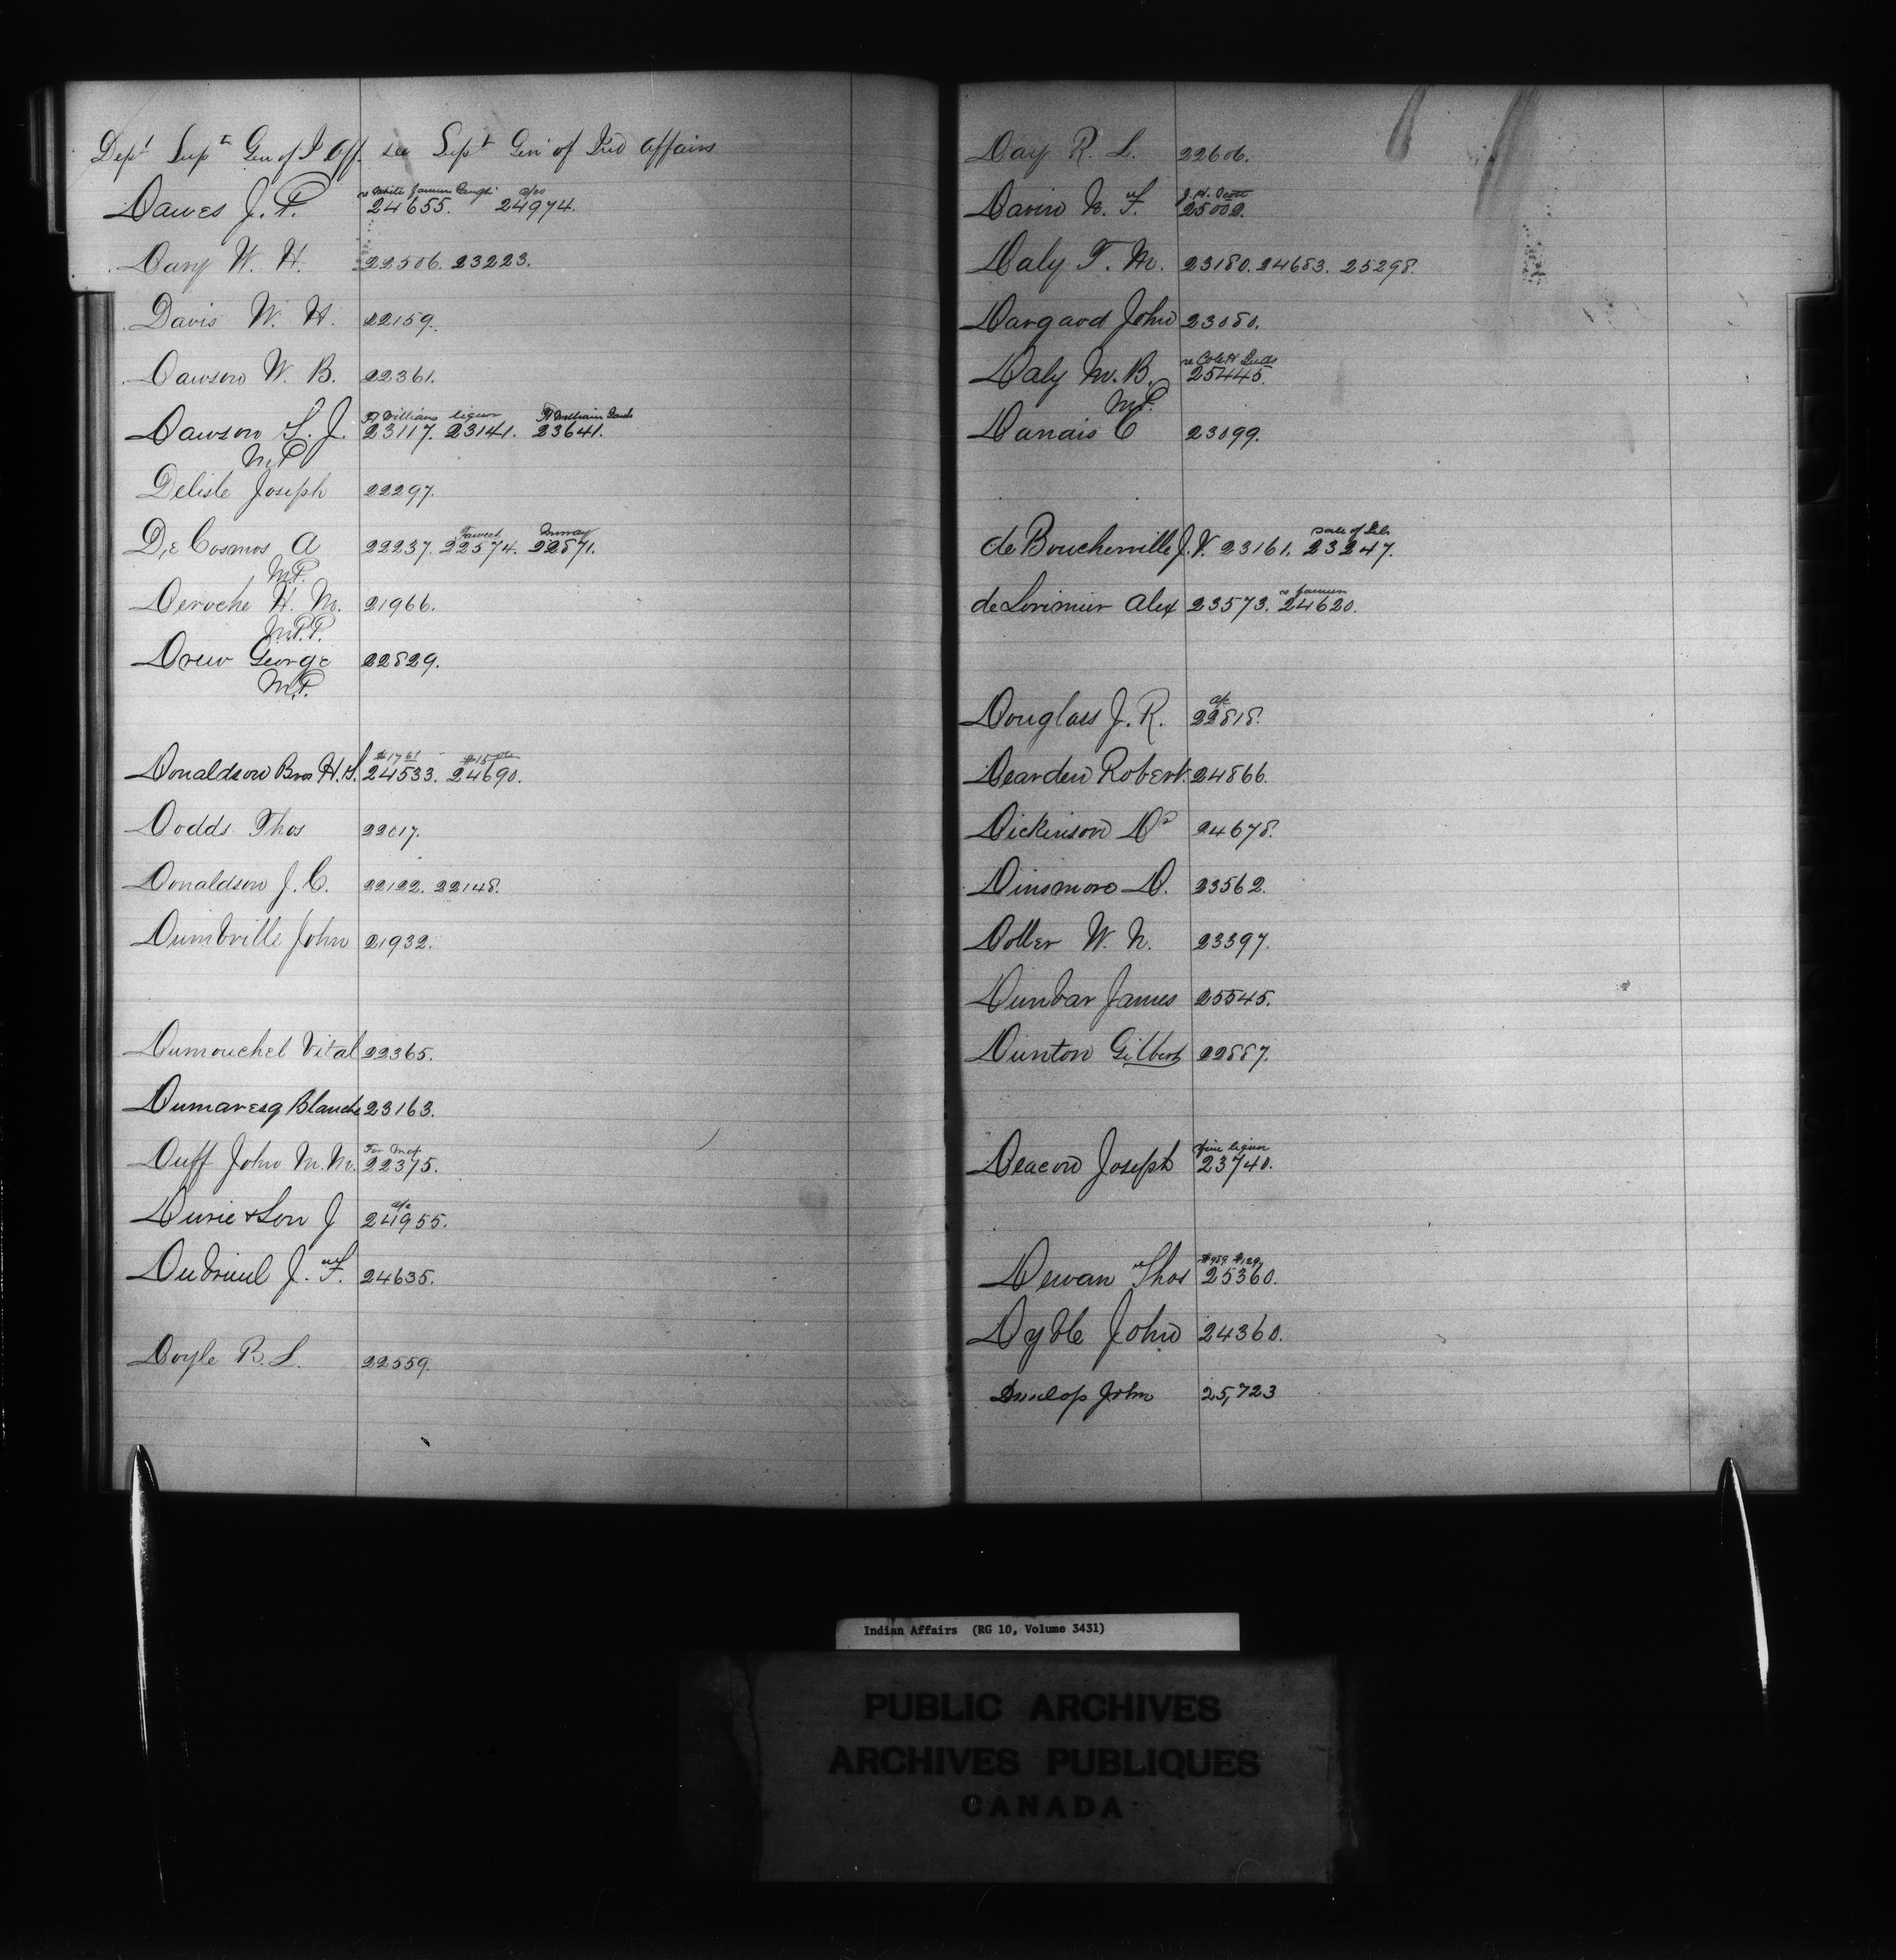 Dept Supt Gen of I Aff. see Supt Gen of Ind Affairs
a/cs
Dawes J. P. 24655. 24974.
Dary W. H. 22506. 23223.
Davis W. H. 22159.
Dawson W. B. 22361.
Ft William liquor Ft William Lands
Dawson S. J. 23117. 23141. 23641.
M.P.
Delisle Joseph 22297.
De Cosmos A 22237. 22574. 22871.
M.P.
Deroche H. M. 21966.
M.P.P.
Drew George 22829.
M.P.
Donaldson Bros H.S. 24533. 24690.
Dodds Thos 22017.
Donaldson J. C. 22122. 22148.
Dumbrille John 21932.
Dumouchel Vital 22365.
Dumaresq Blanche 23163.
Duff John M. M. 22375.
a/c
Durie & Son J 24955.
Dubreuil J. F. 24635.
Doyle B. L. 22559.
Day R. L. 22606.
Davin N. F. 25002.
Daly T. M. 23180. 24683. 25298.
Dargavd John 23080.
Daly M. B. 25445.
M.P.
Danais C 23099.
Sale of
de Boucherville J. V. 23161. 23247.
de Lorimier Alex 23573. 24620.
a/c
Douglass J. R. 22818.
Dearden Robert 24866.
Dickinson Dr 24678.
Dinsmore D. 23562.
Doller W. N. 23397.
Dunbar James 25545.
Dunton Gilbert 22887.
fine liquor
Deacon Joseph 23740.
Dewan Thos 25360.
Dyble John 24360.
Dunlop John 25,723
Indian Affairs (RG 10, Volume 3431)
PUBLIC ARCHIVES
ARCHIVES PUBLIQUES
CANADA